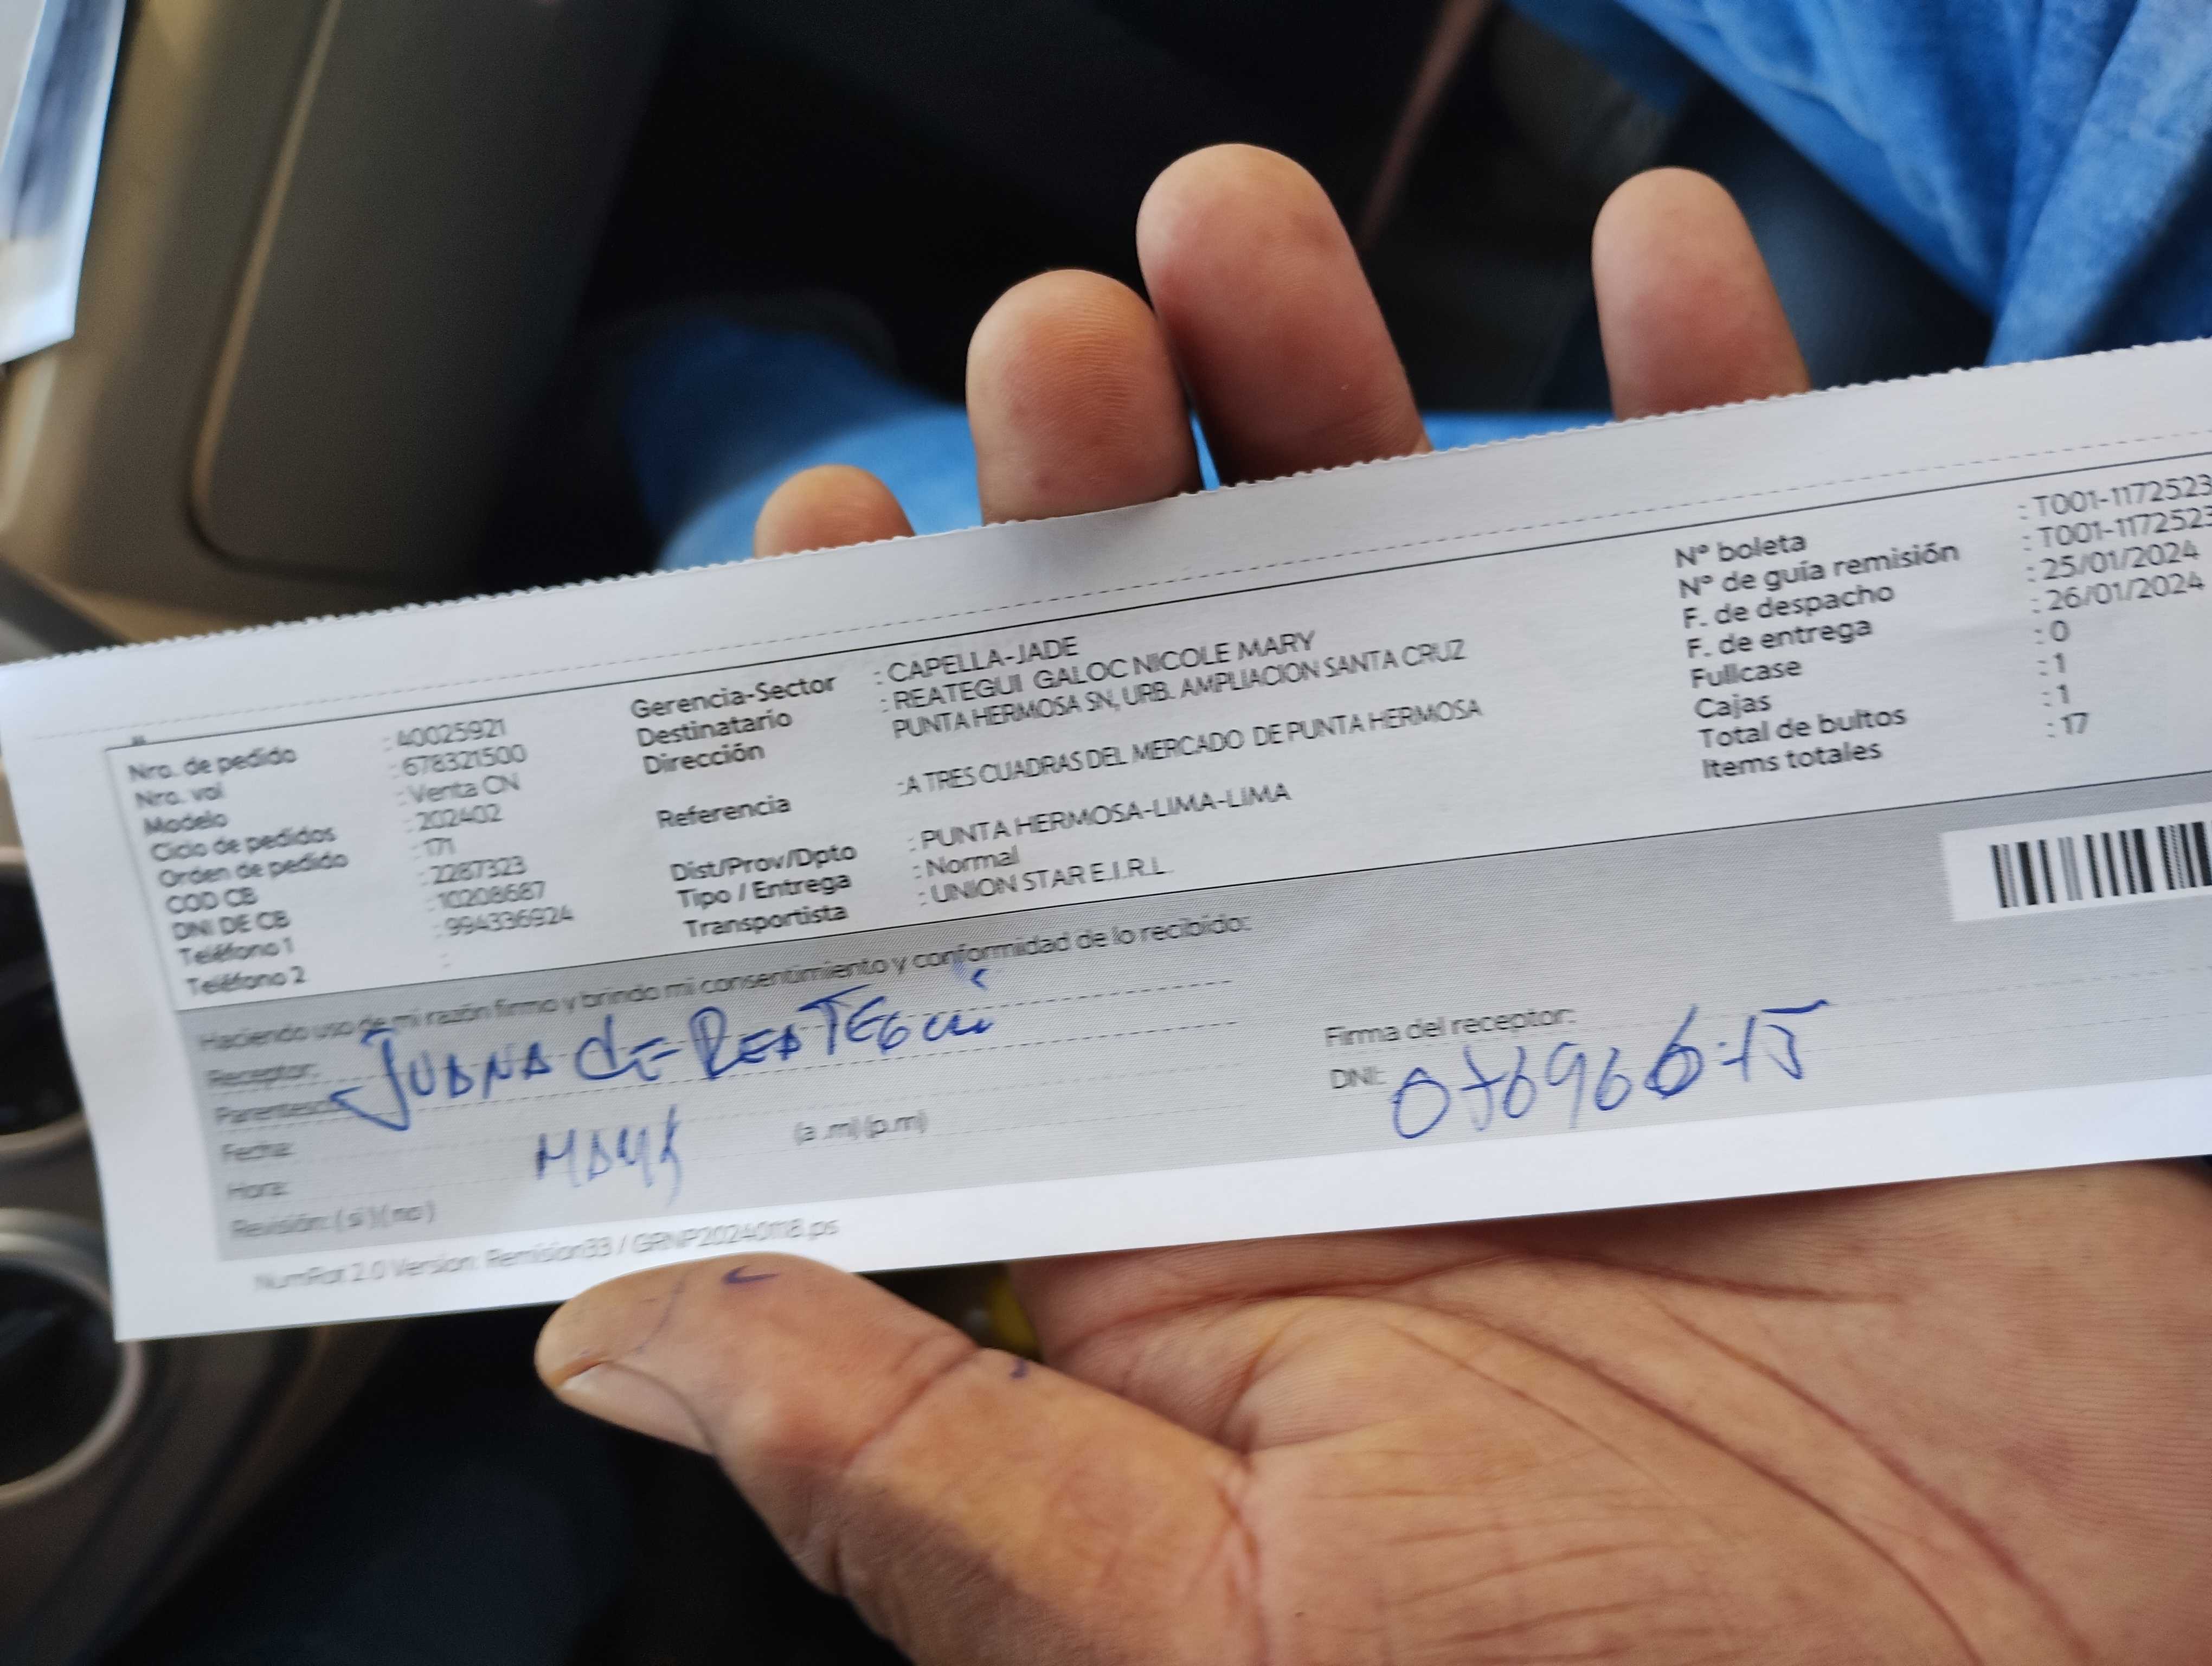 Nro. de pedido : 40025921
Nro. vol : 678321500
Modelo : Venta CN
Ciclo de pedidos : 202402
Orden de pedido : 171
COD CB : 2287323
DNI DE CB : 10208687
Teléfono 1 : 994336924
Teléfono 2 :
Gerencia-Sector : CAPELLA-JADE
Destinatario : REATEGUI GALOC NICOLE MARY
Dirección PUNTA HERMOSA SN, URB. AMPLIACION SANTA CRUZ
Referencia :A TRES CUADRAS DEL MERCADO DE PUNTA HERMOSA
Dist/Prov/Dpto : PUNTA HERMOSA-LIMA-LIMA
Tipo / Entrega : Normal
Transportista : UNION STAR E.I.R.L.
N° boleta : T001-1172523
N° de guía remisión : T001-1172523
F. de despacho : 25/01/2024
F. de entrega : 26/01/2024
Fullcase : 0
Cajas : 1
Total de bultos : 1
Items totales : 17
Haciendo uso de mi razón firmo y brindo mi consentimiento y conformidad de lo recibido:
Receptor: JUANA de REATEGUI
Parentesco
Fecha:
Hora: (a .m) (p.m)
Revisión: ( si ) ( no )
Firma del receptor:
DNI:
NumRot 2.0 Version: Remision33 / GRNP20240118.ps